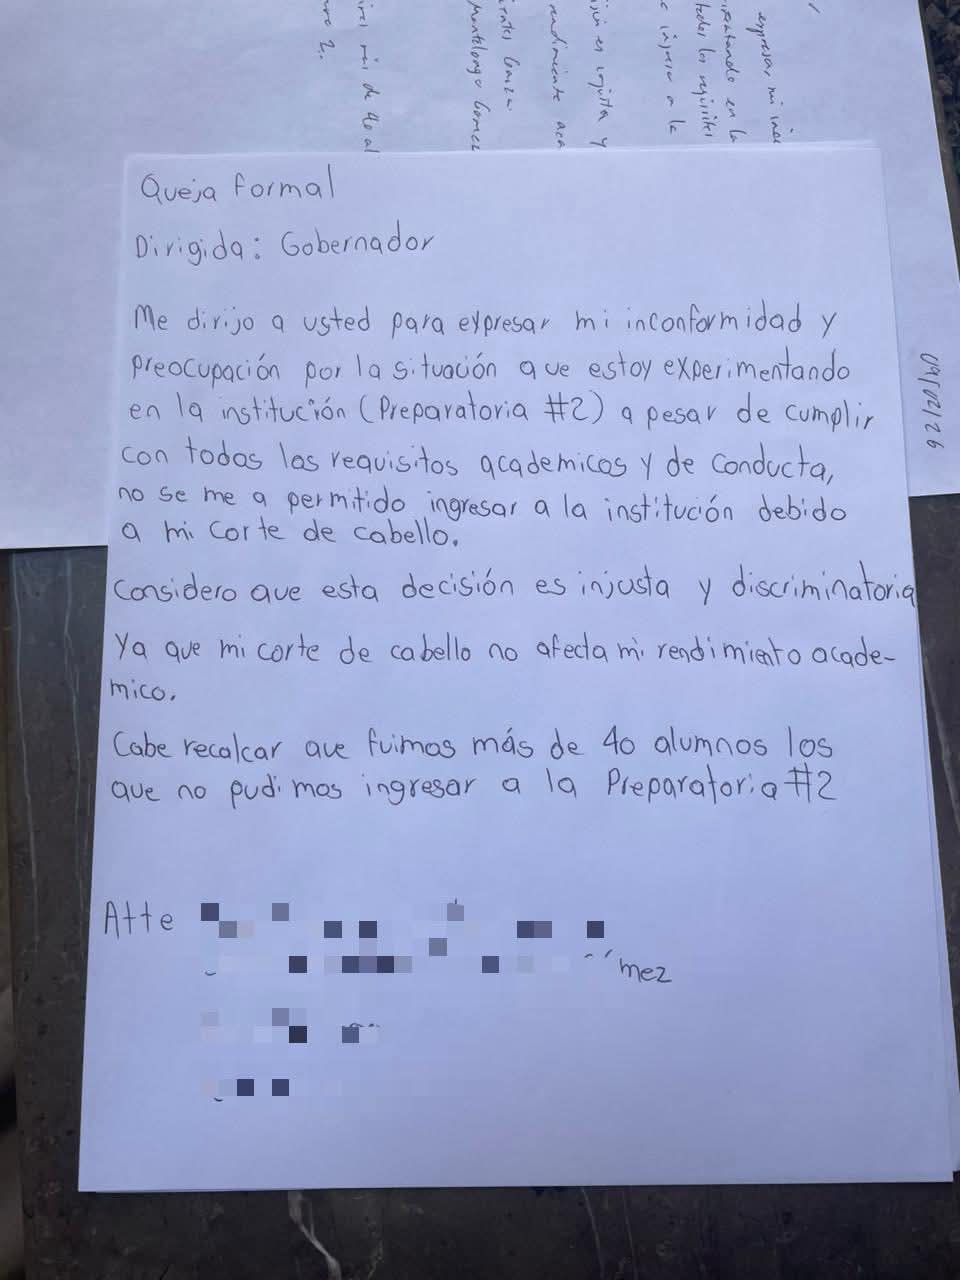 Queja Formal
Dirigida: Gobernador
Me dirijo a usted para expresar mi inconformidad y
preocupación por la situación que estoy experimentando
en la institución (Preparatoria #2) a pesar de cumplir
con todos los requisitos academicos y de conducta,
no se me a permitido ingresar a la institución debido
a mi corte de cabello.
Considero que esta decisión es injusta y discriminatoria
Ya que mi corte de cabello no afecta mi rendimiento acade-
mico.
Cabe recalcar que fuimos más de 40 alumnos los
que no pudimos ingresar a la Preparatoria #2
Atte
mez
09/02/26
expresar mi
en la
todos los requisitos
ingreso a la
es injusta y
más de 40 al